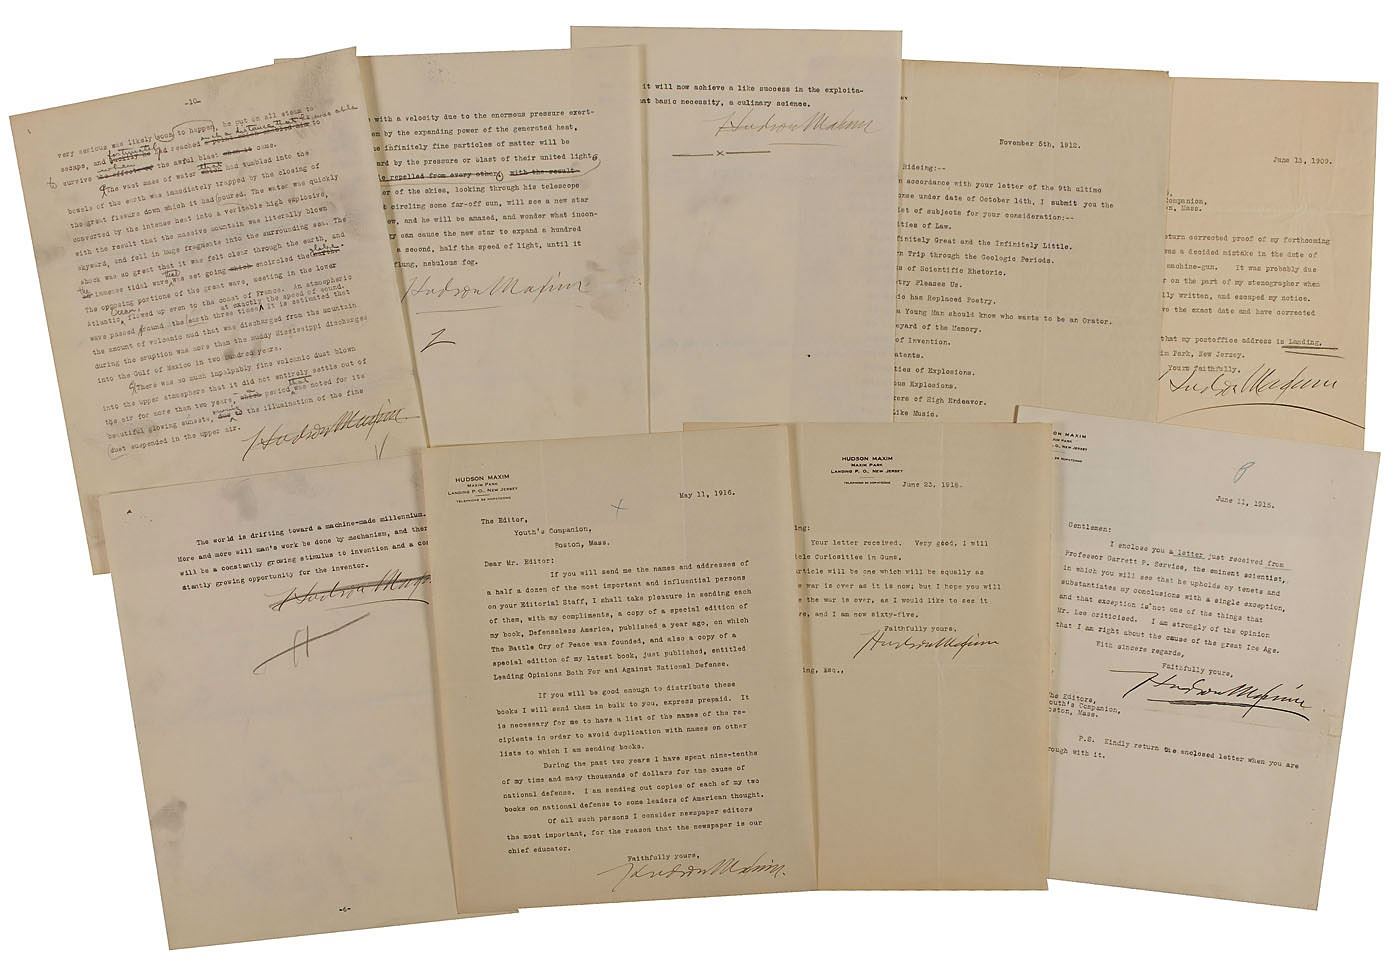 -10-
very serious was likely soon to happen, he put on all steam to
escape, and fortunately had reached such a distance that to
survive when the awful blast came.
The vast mass of water that had tumbled into the
bowels of the earth was immediately trapped by the closing of
the great fissure down which it had poured. The water was quickly
converted by the intense heat into a veritable high explosive,
with the result that the massive mountain was literally blown
skyward, and fell in huge fragments into the surrounding sea. The
shock was so great that it was felt clear through the earth, and
immense tidal wave was set going encircled the globe.
The opposing portions of the great wave, meeting in the lower
Atlantic Ocean, flowed up even to the coast of France. An atmospheric
wave passed around the earth three times at exactly the speed of sound. It is estimated that
the amount of volcanic mud that was discharged from the mountain
during the eruption was more than the muddy Mississippi discharges
into the Gulf of Mexico in two hundred years.
There was so much impalpably fine volcanic dust blown
into the upper atmosphere that it did not entirely settle out of
the air for more than two years, period that was noted for its
beautiful glowing sunsets, the illumination of the fine
dust suspended in the upper air.
Hudson Maxim
with a velocity due to the enormous pressure exert-
by the expanding power of the generated heat,
infinitely fine particles of matter will be
by the pressure or blast of their united light,
repelled from every other, with the result
of the skies, looking through his telescope
circling some far-off sun, will see a new star
and he will be amazed, and wonder what incon-
can cause the new star to expand a hundred
a second, half the speed of light, until it
flung, nebulous fog.
Hudson Maxim
it will now achieve a like success in the exploita-
basic necessity, a culinary science.
Hudson Maxim
x
November 5th, 1912.
Rideing:--
accordance with your letter of the 9th ultimo
under date of October 14th, I submit you the
list of subjects for your consideration:--
of Law.
Infinitely Great and the Infinitely Little.
Trip through the Geologic Periods.
of Scientific Rhetoric.
Poetry Pleases Us.
has Replaced Poetry.
a Young Man should know who wants to be an Orator.
of the Memory.
of Invention.
Patents.
of Explosions.
Explosions.
of High Endeavor.
Like Music.
June 15, 1909.
Companion,
Mass.
return corrected proof of my forthcoming
was a decided mistake in the date of
machine-gun. It was probably due
on the part of my stenographer when
written, and escaped my notice.
the exact date and have corrected
that my postoffice address is Landing,
Park, New Jersey.
Yours faithfully.
Hudson Maxim
The world is drifting toward a machine-made millennium.
More and more will man's work be done by mechanism, and
will be a constantly growing stimulus to invention and a
stantly growing opportunity for the inventor.
Hudson Maxim
-6-
HUDSON MAXIM
MAXIM PARK
LANDING P. O., NEW JERSEY
May 11, 1916.
The Editor,
Youth's Companion,
Boston, Mass.
Dear Mr. Editor:
If you will send me the names and addresses of
a half a dozen of the most important and influential persons
on your Editorial Staff, I shall take pleasure in sending each
of them, with my compliments, a copy of a special edition of
my book, Defenseless America, published a year ago, on which
The Battle Cry of Peace was founded, and also a copy of a
special edition of my latest book, just published, entitled
Leading Opinions Both For and Against National Defense.
If you will be good enough to distribute these
books I will send them in bulk to you, express prepaid. It
is necessary for me to have a list of the names of the re-
cipients in order to avoid duplication with names on other
lists to which I am sending books.
During the past two years I have spent nine-tenths
of my time and many thousands of dollars for the cause of
national defense. I am sending out copies of each of my two
books on national defense to some leaders of American thought.
Of all such persons I consider newspaper editors
the most important, for the reason that the newspaper is our
chief educator.
Faithfully yours,
Hudson Maxim
HUDSON MAXIM
MAXIM PARK
LANDING P. O., NEW JERSEY
June 23, 1918.
Your letter received. Very good, I will
Curiosities in Guns.
article will be one which will be equally as
war is over as it is now; but I hope you will
the war is over, as I would like to see it
and I am now sixty-five.
Faithfully yours,
Hudson Maxim
Esq.,
HUDSON MAXIM
PARK
P. O., NEW JERSEY
June 11, 1915.
Gentlemen:
I enclose you a letter just received from
Professor Garrett P. Serviss, the eminent scientist,
in which you will see that he upholds my tenets and
substantiates my conclusions with a single exception,
and that exception is not one of the things that
Mr. Lee criticised. I am strongly of the opinion
that I am right about the cause of the great Ice Age.
With sincere regards,
Faithfully yours,
Hudson Maxim
The Editors,
Youth's Companion,
Boston, Mass.
P.S. Kindly return the enclosed letter when you are
through with it.